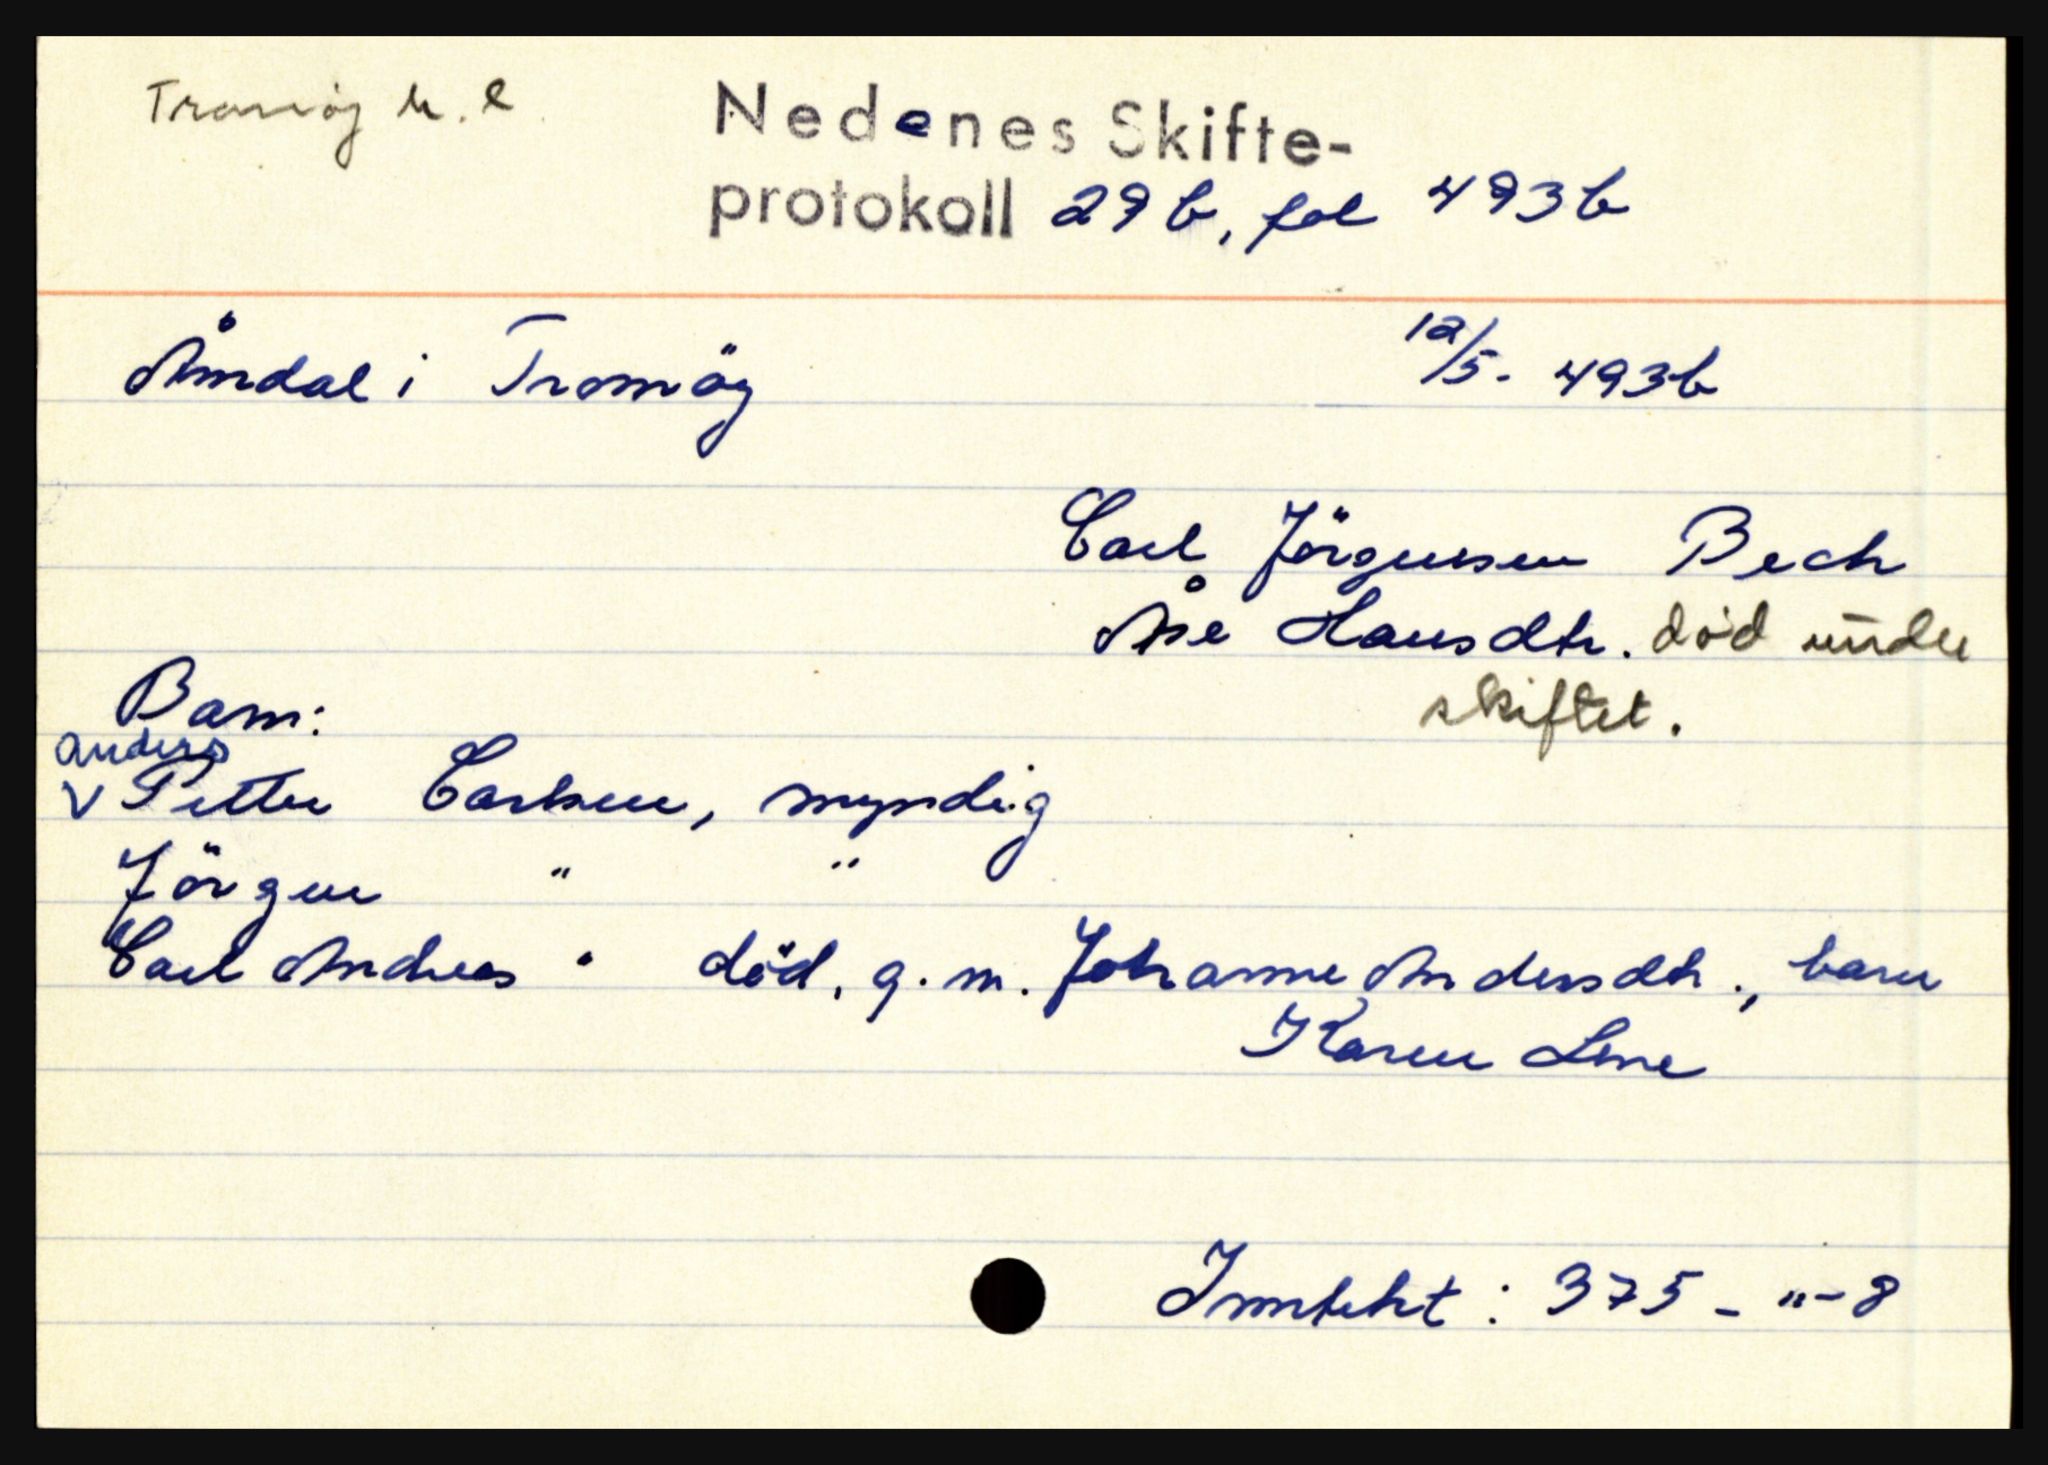 Tromöy
Nedenes Skifte-
protokoll 29 b, fol 493 b
Åmdal i Tromöy 12/5. 493 b
Carl Jörgensen Bech
Åse Hansdtr. död under
skiftet.
Barn:
Anders
V Petter Carlsen, myndig
Jörgen " "
Carl Andreas " död, g. m. Johanne Andersdtr., barn
Karen Lene
Inntekt: 375 - " - 8